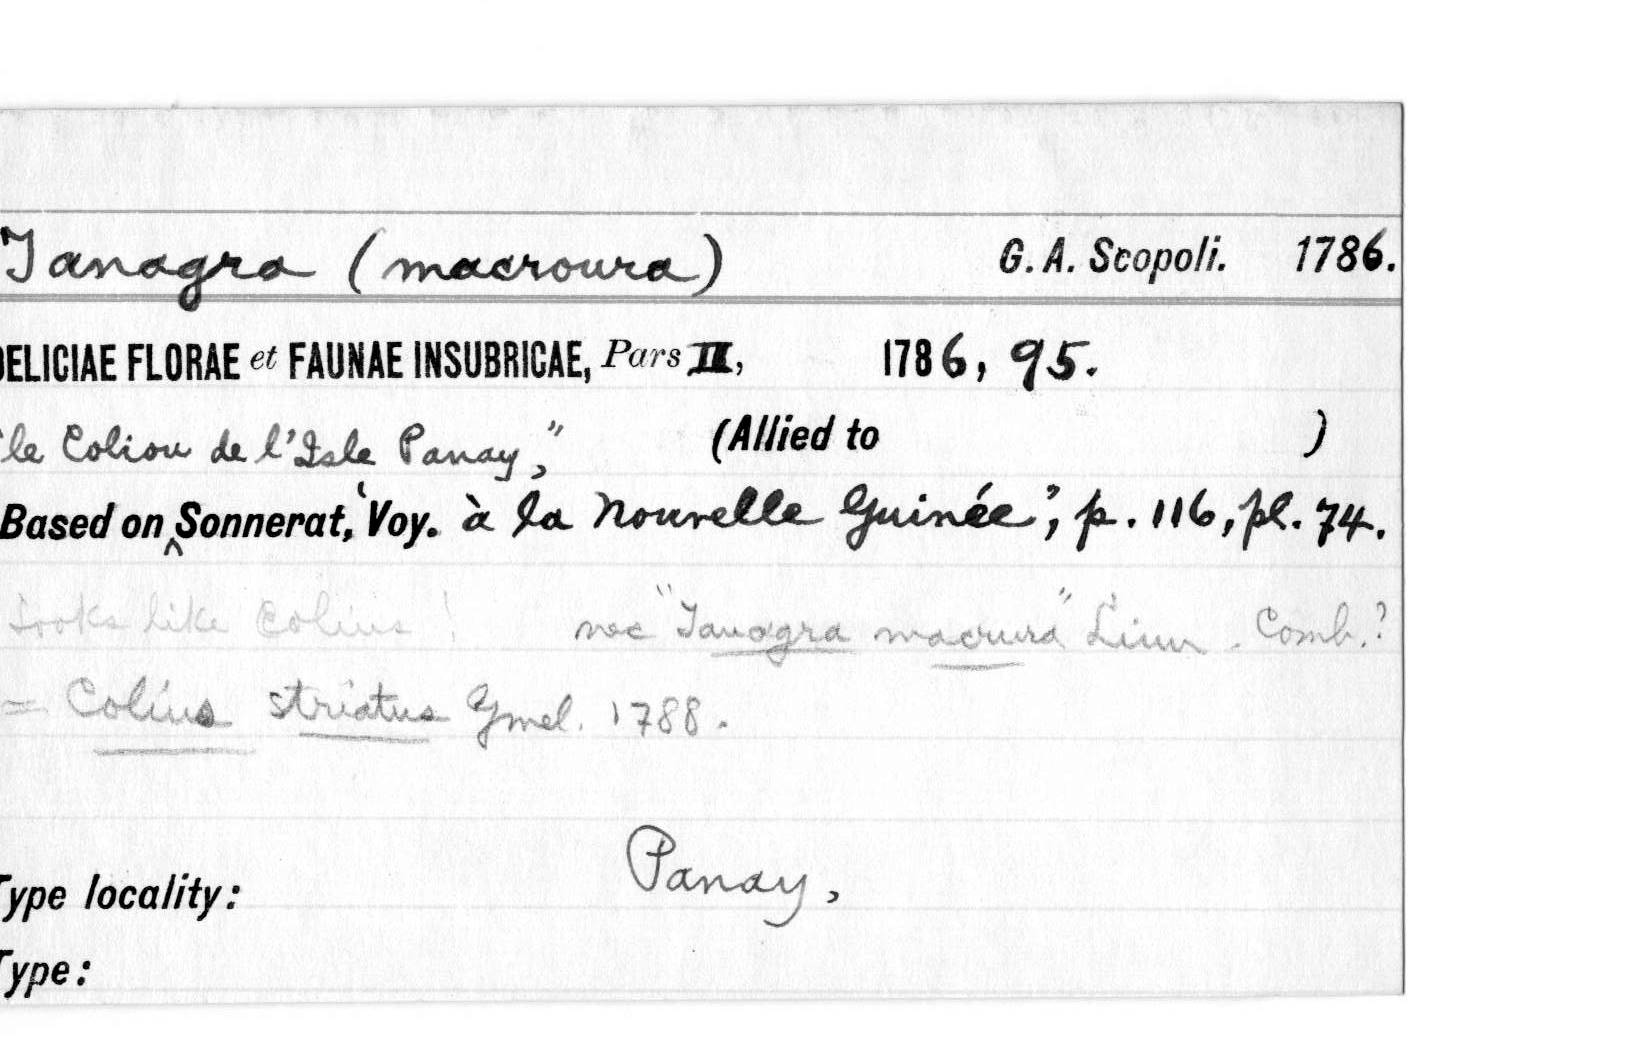 Tanagra (macroura) G. A. Scopoli. 1786.
DELICIAE FLORAE et FAUNAE INSUBRICAE, Pars II, 1786, 95.
"le Coliou de l'Isle Panay," (Allied to )
Based on ^ Sonnerat, 'Voy. à la Nouvelle Guinée', p. 116, pl. 74.
Looks like Colius! nec "Tanagra macrura" Linn. Comb.?
= Colius striatus Gmel. 1788.
Type locality: Panay,
Type: